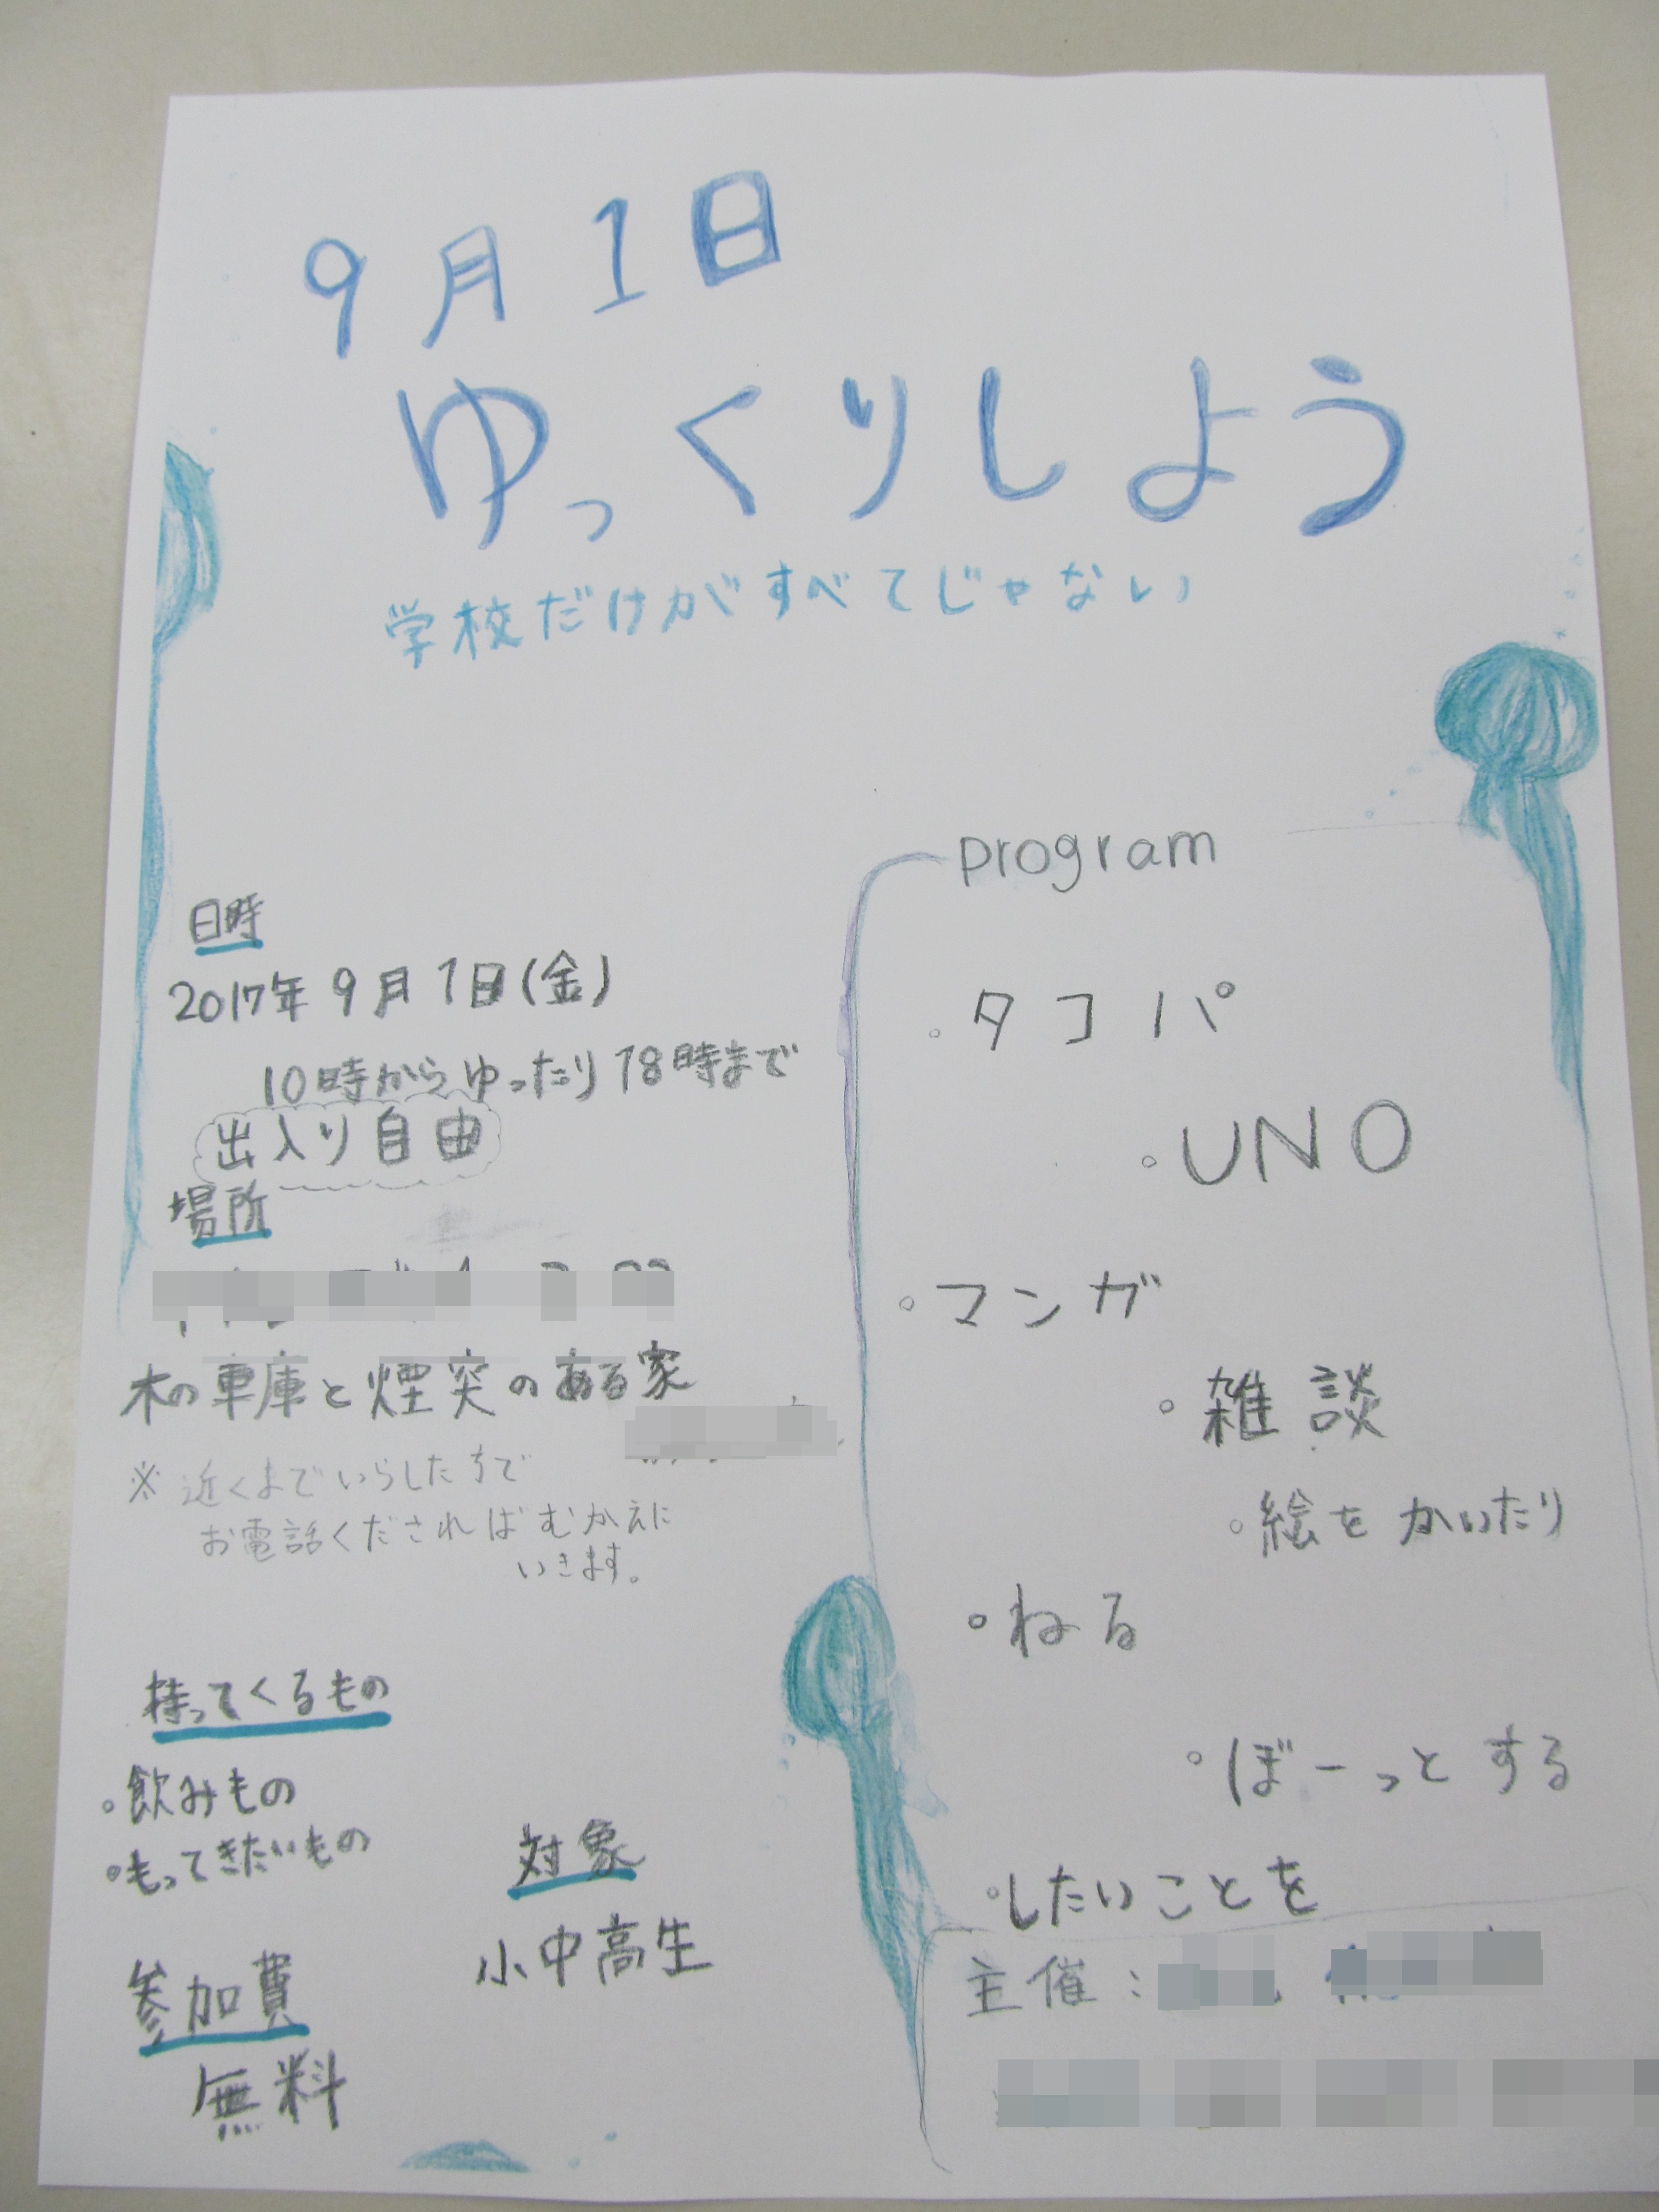 9月1日
ゆっくりしよう
学校だけがすべてじゃない
日時
2017年9月1日(金)
10時からゆったり18時まで
出入り自由
場所
木の車庫と煙突のある家
※近くまでいらした方で
お電話くださればむかえに
いきます。
持ってくるもの
。飲みもの
。もってきたいもの
対象
小中高生
参加費
無料
program
。タコパ
。UNO
。マンガ
。雑談
。絵をかいたり
。ねる
。ぼーっとする
。したいことを
主催: